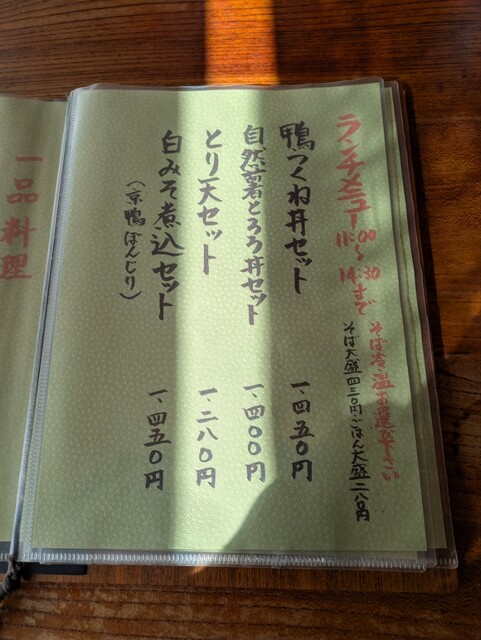 ランチメニュー 11:00〜14:30まで
そば冷・温お選び下さい
そば大盛四三〇円・ごはん大盛二八〇円
鴨つくね丼セット 一、四五〇円
自然薯とろろ丼セット 一、四〇〇円
とり天セット 一、二八〇円
白みそ煮込セット 一、四五〇円
(京鴨ぼんじり)
一品料理